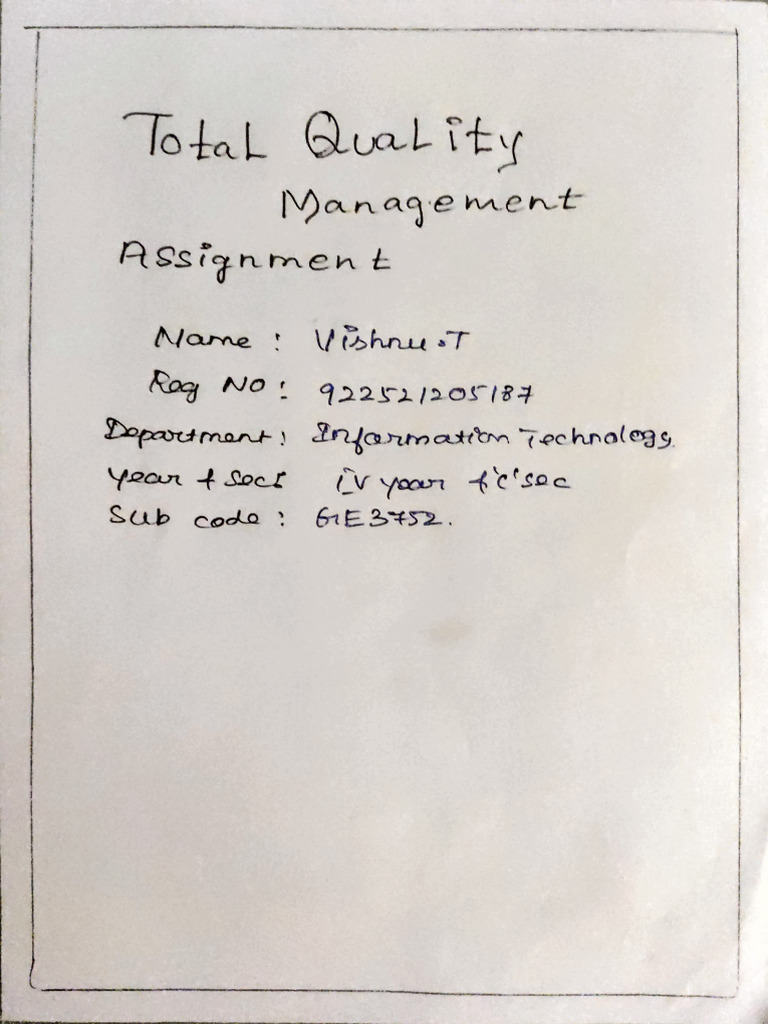 Total Quality
Management
Assignment
Name : Vishnu.T
Reg No : 922521205187
Department : Information Technology
Year & Sec : IV year & 'C' sec
Sub code : GE3752.